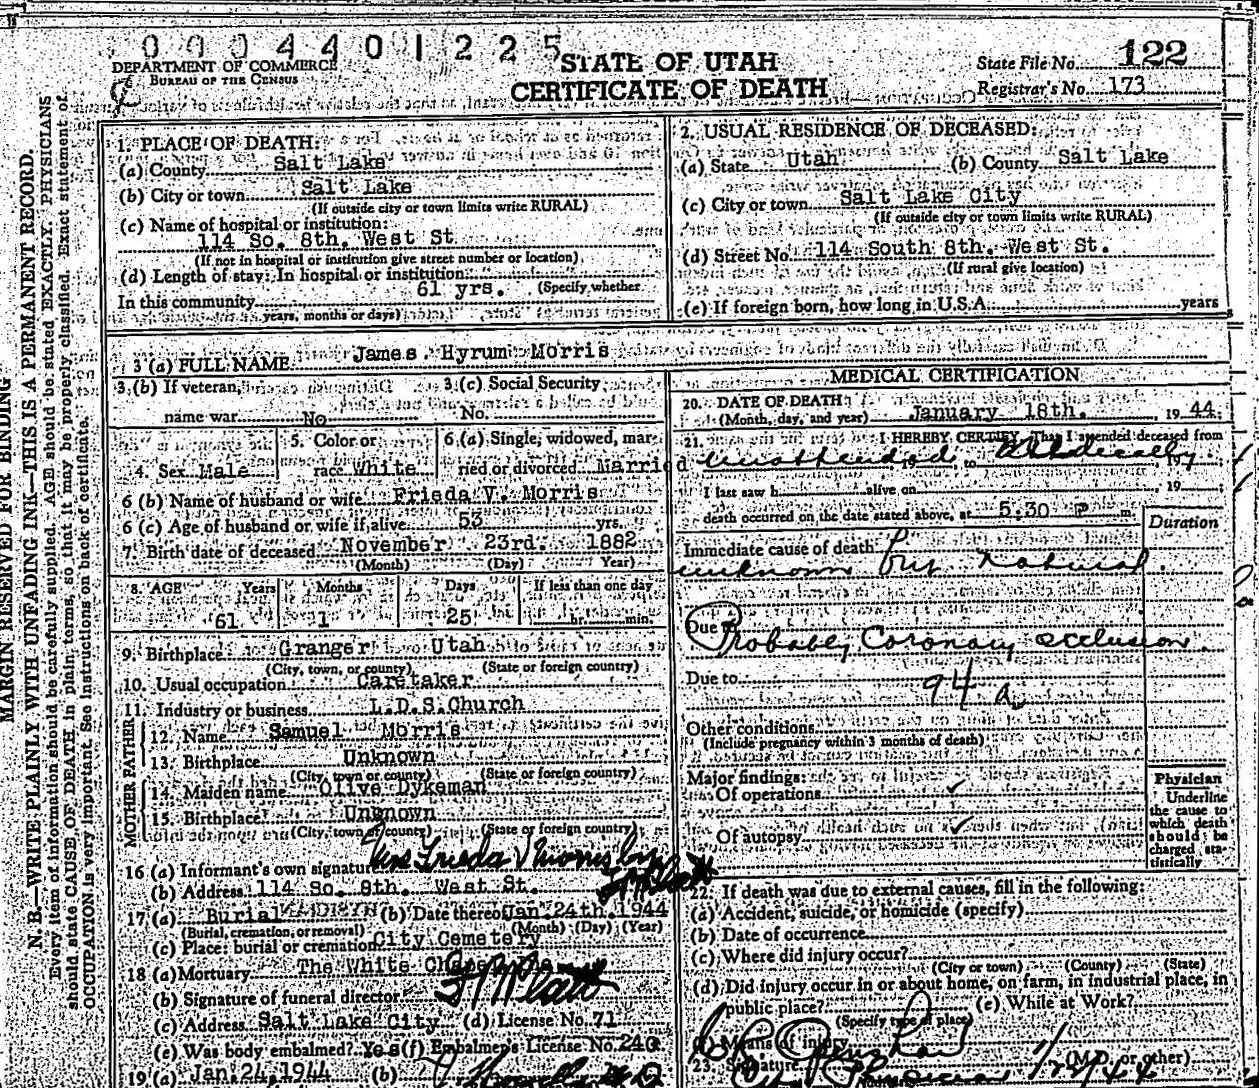 0004401225
DEPARTMENT OF COMMERCE
BUREAU OF THE CENSUS
STATE OF UTAH
CERTIFICATE OF DEATH
State File No. 122
Registrar's No. 173
MARGIN RESERVED FOR BINDING
N. B.—WRITE PLAINLY WITH UNFADING INK—THIS IS A PERMANENT RECORD.
Every item of information should be carefully supplied. AGE should be stated EXACTLY. PHYSICIANS
should state CAUSE OF DEATH in plain terms, so that it may be properly classified. Exact statement of
OCCUPATION is very important. See instructions on back of certificate.
1. PLACE OF DEATH:
(a) County Salt Lake
(b) City or town Salt Lake
(If outside city or town limits write RURAL)
(c) Name of hospital or institution:
114 So. 8th. West St
(If not in hospital or institution give street number or location)
(d) Length of stay: In hospital or institution
61 yrs. (Specify whether
In this community
years, months or days)
2. USUAL RESIDENCE OF DECEASED:
(a) State Utah (b) County Salt Lake
(c) City or town Salt Lake City
(If outside city or town limits write RURAL)
(d) Street No. 114 South 8th. West St.
(If rural give location)
(e) If foreign born, how long in U.S.A. years
3 (a) FULL NAME James Hyrum Morris
3.(b) If veteran, 3.(c) Social Security
name war No No.
4. Sex Male 5. Color or race White 6.(a) Single, widowed, married or divorced Married
6 (b) Name of husband or wife Frieda V. Morris
6 (c) Age of husband or wife if alive 53 yrs.
7. Birth date of deceased November 23rd. 1882
(Month) (Day) Year)
8. AGE Years Months Days If less than one day
61 1 25 hr. min.
9. Birthplace Granger Utah
(City, town, or county) (State or foreign country)
10. Usual occupation Caretaker
11. Industry or business L.D.S.Church
FATHER
12. Name Samuel Morris
13. Birthplace Unknown
(City, town or county) (State or foreign country)
MOTHER
14. Maiden name Olive Dykeman
15. Birthplace Unknown
(City, town or county) (State or foreign country)
16 (a) Informant's own signature Mrs Frieda V Morris by
(b) Address 114 So. 8th. West St.
17 (a) Burial (b) Date thereof Jan. 24th. 1944
(Burial, cremation, or removal) (Month) (Day) (Year)
(c) Place: burial or cremation City Cemetery
18 (a) Mortuary The White
(b) Signature of funeral director
(c) Address Salt Lake City (d) License No. 71
(e) Was body embalmed? Yes (f) Embalmer's License No. 240
19 (a) Jan. 24, 1944 (b)
MEDICAL CERTIFICATION
20. DATE OF DEATH
(Month, day, and year) January 18th. 1944
21. I HEREBY CERTIFY, That I attended deceased from
unattended 19 , to Medically 19
I last saw h alive on , 19
death occurred on the date stated above, at 5:30 P m.
Duration
Immediate cause of death
unknown but natural.
Due to Probably Coronary occlusion.
Due to 94 a
Other conditions
(Include pregnancy within 3 months of death)
Major findings:
Of operations
Of autopsy
Physician
Underline
the cause to
which death
should be
charged sta-
tistically
22. If death was due to external causes, fill in the following:
(a) Accident, suicide, or homicide (specify)
(b) Date of occurrence
(c) Where did injury occur?
(City or town) (County) (State)
(d) Did injury occur in or about home, on farm, in industrial place, in
public place? (e) While at Work?
(Specify type of place)
Means of injury
23. Signature (M.D. or other)
City Physician